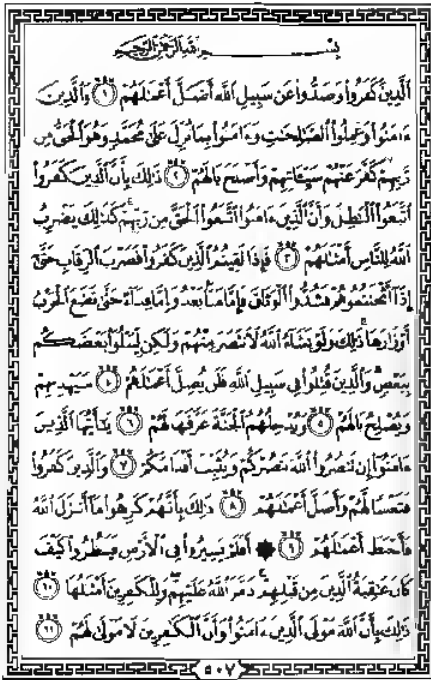 بِسْمِ اللَّهِ الرَّحْمَٰنِ الرَّحِيمِ
الَّذِينَ كَفَرُوا وَصَدُّوا عَن سَبِيلِ اللَّهِ أَضَلَّ أَعْمَٰلَهُمْ ١ وَالَّذِينَ
ءَامَنُوا وَعَمِلُوا الصَّٰلِحَٰتِ وَءَامَنُوا بِمَا نُزِّلَ عَلَىٰ مُحَمَّدٍ وَهُوَ الْحَقُّ مِن
رَّبِّهِمْ كَفَّرَ عَنْهُمْ سَيِّـَٔاتِهِمْ وَأَصْلَحَ بَالَهُمْ ٢ ذَٰلِكَ بِأَنَّ الَّذِينَ كَفَرُوا
اتَّبَعُوا الْبَٰطِلَ وَأَنَّ الَّذِينَ ءَامَنُوا اتَّبَعُوا الْحَقَّ مِن رَّبِّهِمْ كَذَٰلِكَ يَضْرِبُ
اللَّهُ لِلنَّاسِ أَمْثَٰلَهُمْ ٣ فَإِذَا لَقِيتُمُ الَّذِينَ كَفَرُوا فَضَرْبَ الرِّقَابِ حَتَّىٰ
إِذَا أَثْخَنتُمُوهُمْ فَشُدُّوا الْوَثَاقَ فَإِمَّا مَنًّا بَعْدُ وَإِمَّا فِدَاءً حَتَّىٰ تَضَعَ الْحَرْبُ
أَوْزَارَهَا ذَٰلِكَ وَلَوْ يَشَاءُ اللَّهُ لَانتَصَرَ مِنْهُمْ وَلَٰكِن لِّيَبْلُوَا بَعْضَكُم
بِبَعْضٍ وَالَّذِينَ قُتِلُوا فِي سَبِيلِ اللَّهِ فَلَن يُضِلَّ أَعْمَٰلَهُمْ ٤ سَيَهْدِيهِمْ
وَيُصْلِحُ بَالَهُمْ ٥ وَيُدْخِلُهُمُ الْجَنَّةَ عَرَّفَهَا لَهُمْ ٦ يَٰأَيُّهَا الَّذِينَ
ءَامَنُوا إِن تَنصُرُوا اللَّهَ يَنصُرْكُمْ وَيُثَبِّتْ أَقْدَامَكُمْ ٧ وَالَّذِينَ كَفَرُوا
فَتَعْسًا لَّهُمْ وَأَضَلَّ أَعْمَٰلَهُمْ ٨ ذَٰلِكَ بِأَنَّهُمْ كَرِهُوا مَا أَنزَلَ اللَّهُ
فَأَحْبَطَ أَعْمَٰلَهُمْ ٩ ۞ أَفَلَمْ يَسِيرُوا فِي الْأَرْضِ فَيَنظُرُوا كَيْفَ
كَانَ عَٰقِبَةُ الَّذِينَ مِن قَبْلِهِمْ دَمَّرَ اللَّهُ عَلَيْهِمْ وَلِلْكَٰفِرِينَ أَمْثَٰلُهَا ١٠
ذَٰلِكَ بِأَنَّ اللَّهَ مَوْلَى الَّذِينَ ءَامَنُوا وَأَنَّ الْكَٰفِرِينَ لَا مَوْلَىٰ لَهُمْ ١١
٥٠٧